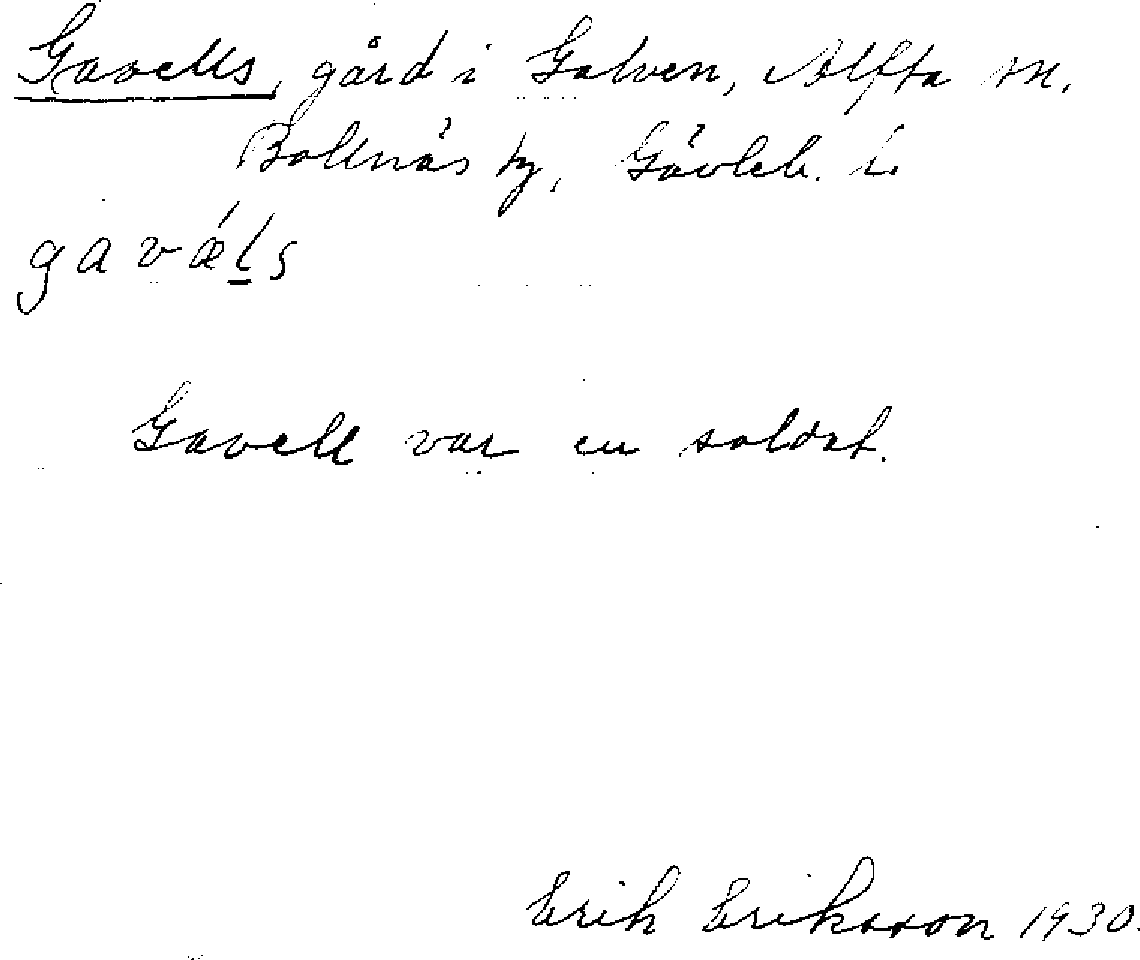 Gavells, gård i Galven, Alfta sn.
Bollnäs tg, Gävleb. l.
gavǽl̲s
Gavell var en soldat.
Erik Eriksson 1930.